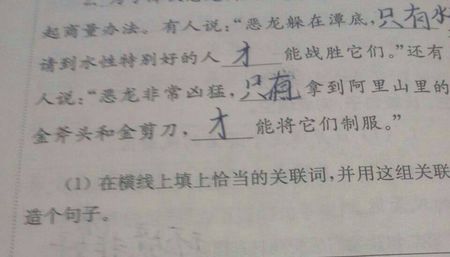 起商量办法。有人说：“恶龙躲在潭底，只有水
请到水性特别好的人 才 能战胜它们。”还有
人说：“恶龙非常凶猛，只有 拿到阿里山里的
金斧头和金剪刀， 才 能将它们制服。”
(1) 在横线上填上恰当的关联词，并用这组关联
造个句子。